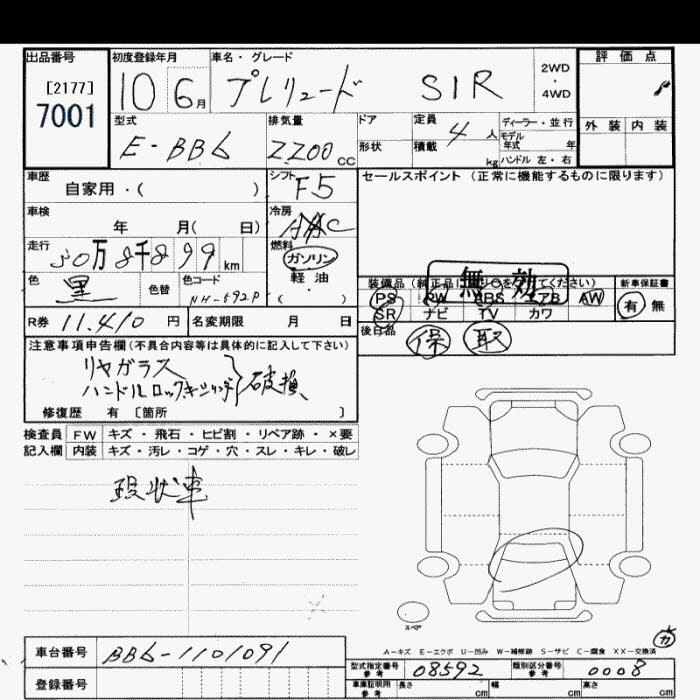 出品番号
[2177]
7001
初度登録年月
10 6月
車名・グレード
プレリュード SIR
2WD
・
4WD
評価点
外装 内装
型式
E-BB6
排気量
2200cc
ドア
形状
定員 4人
積載 kg
ディーラー・並行
モデル年式 年
ハンドル 左・右
車歴
自家用・( )
シフト
F5
セールスポイント(正常に機能するものに限ります)
車検
年 月( 日)
冷房
走行
8千899km
燃料
ガソリン
軽・油
( )
色
黒
色替
色コード
NH-592P
無効
新車保証書
有 無
PS PW ABS エアB AW
SR ナビ TV カワ
後日品
保 取
R券 11,410円
名変期限 月 日
注意事項申告欄(不具合内容等は具体的に記入して下さい)
リヤガラス
破損
修復歴 有 [箇所 ]
検査員 FW キズ・飛石・ヒビ割・リペア跡・×要
記入欄 内装 キズ・汚レ・コゲ・穴・スレ・キレ・破レ
現状車
スペア
A-キズ E-エクボ U-凹み W-補修跡 S-サビ C-腐食 XX-交換済
車台番号 BB6-1101091
登録番号
型式指定番号
参考
08592
類別区分番号
参考
0008
車庫証明用
参考
長さ cm 幅 cm 高さ cm